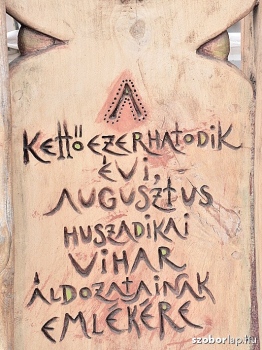 A
KETTŐEZERHATODIK
ÉVI,
AUGUSZTUS
HUSZADIKAI
VIHAR
ÁLDOZATAINAK
EMLÉKÉRE
szoborlap.hu